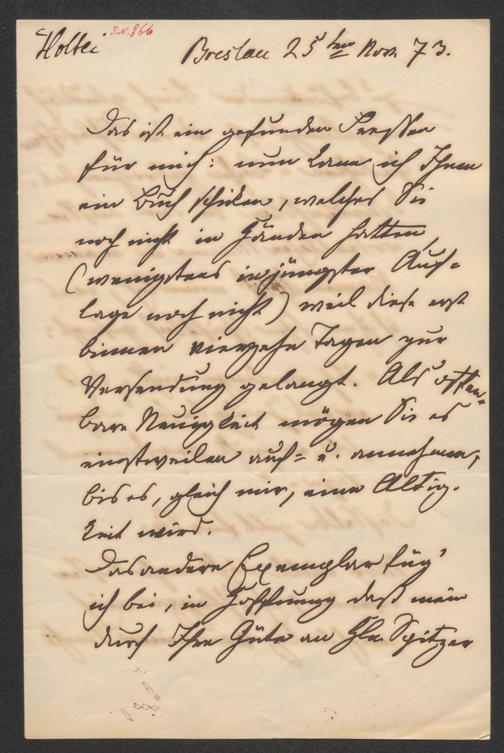 Holtei J.N. 866
Breslau 25ten Nov. 73.
Das ist ein gefundenes Fressen
für mich: nun kann ich Ihnen
ein Buch schicken, welches Sie
noch nicht in Händen hatten,
(wenigstens in jüngster Auf-
lage noch nicht) weil diese erst
binnen vierzehn Tagen zur
Versendung gelangt. Als offen-
bare Neuigkeit mögen Sie es
einstweilen auf- u. annehmen,
bis es, gleich mir, eine Altig-
keit wird.
Das andere Exemplar füg'
ich bei, in Hoffnung daß mein
durch Ihre Güte an Hln. Spitzer